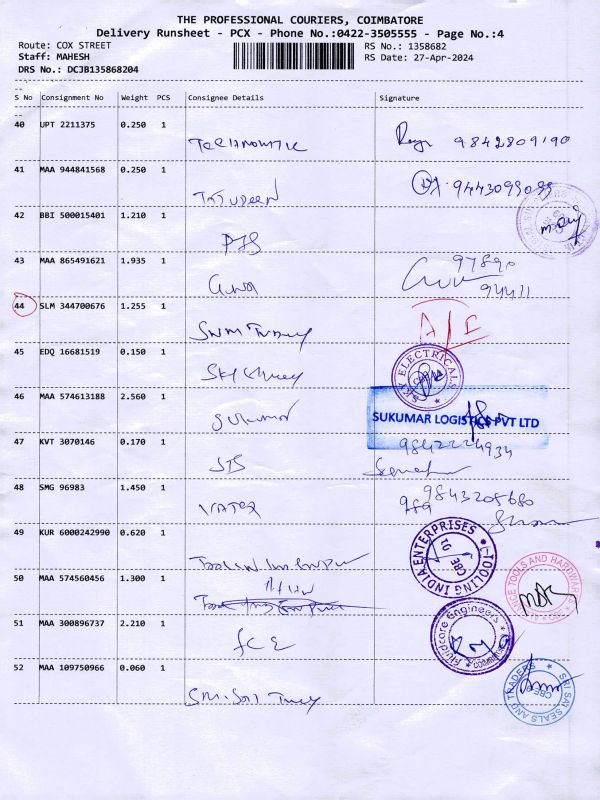 THE PROFESSIONAL COURIERS, COIMBATORE
Delivery Runsheet - PCX - Phone No.:0422-3505555 - Page No.:4
Route: COX STREET RS No.: 1358682
Staff: MAHESH RS Date: 27-Apr-2024
DRS No.: DCJB135868204
S No Consignment No Weight PCS Consignee Details Signature
40 UPT 2211375 0.250 1
9842809190
41 MAA 944841568 0.250 1
TAJUDEEN 9443099099
42 BBI 500015401 1.210 1
PTS
43 MAA 865491621 1.935 1
Guna 97890
94411
44 SLM 344700676 1.255 1
45 EDQ 16681519 0.150 1
SKY ELECTRICALS
46 MAA 574613188 2.560 1
Sukumar SUKUMAR LOGISTICS PVT LTD
47 KVT 3070146 0.170 1
STS
48 SMG 96983 1.450 1
9843205680
49 KUR 6000242990 0.620 1
TOOLING INDIA ENTERPRISES
CBE
50 MAA 574560456 1.300 1
TOOLS AND HARDWARE
51 MAA 300896737 2.210 1
FCE Fluidcore Engineers
52 MAA 109750966 0.060 1
SRI SAI SEALS AND TRADERS
CBE